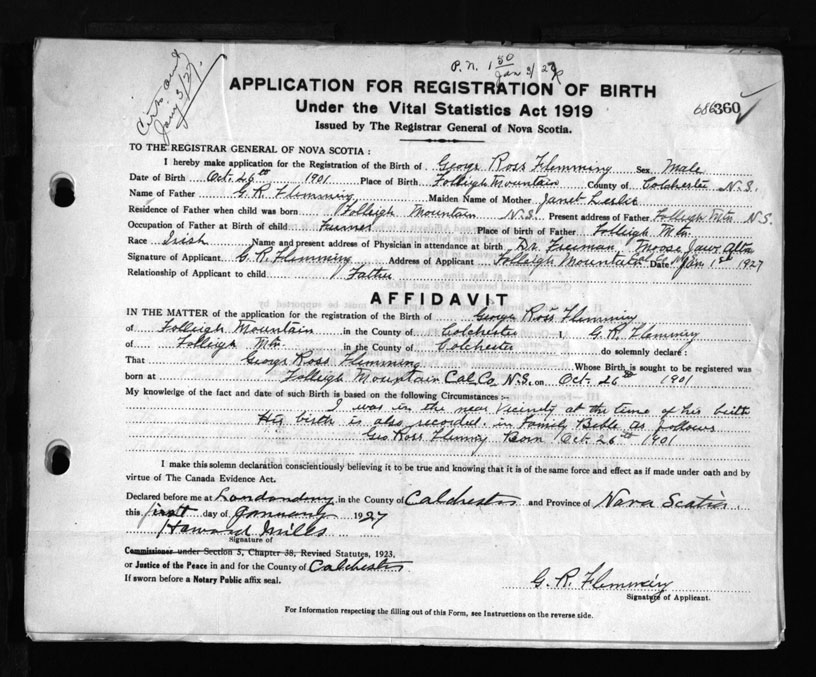 P. N. 1 50
Jan 3/27
Cert. and
Jany 3/27.
APPLICATION FOR REGISTRATION OF BIRTH
Under the Vital Statistics Act 1919
686360
Issued by The Registrar General of Nova Scotia.
TO THE REGISTRAR GENERAL OF NOVA SCOTIA :
I hereby make application for the Registration of the Birth of George Ross Flemming Sex Male
Date of Birth Oct. 26th 1901 Place of Birth Folleigh Mountain County of Colchester N.S.
Name of Father G R Flemming Maiden Name of Mother Janet Leslie
Residence of Father when child was born Folleigh Mountain N.S. Present address of Father Folleigh Mtn N.S.
Occupation of Father at Birth of child Farmer Place of birth of Father Folleigh Mtn.
Race Irish Name and present address of Physician in attendance at birth Dr. Freeman, Moose Jaw Alta
Signature of Applicant G. R. Flemming Address of Applicant Folleigh Mountain Col. Co. N.S. Date Jan 1st 1927
Relationship of Applicant to child Father
AFFIDAVIT
IN THE MATTER of the application for the registration of the Birth of George Ross Flemming
of Folleigh Mountain in the County of Colchester I, G. R. Flemming
of Folleigh Mtn. in the County of Colchester do solemnly declare :
That George Ross Flemming Whose Birth is sought to be registered was
born at Folleigh Mountain Col. Co. N.S. on Oct. 26th 1901
My knowledge of the fact and date of such Birth is based on the following Circumstances :-
I was in the near Vicinity at the time of his birth
His birth is also recorded in Family Bible as follows
Geo Ross Flemming Born Oct. 26th 1901
I make this solemn declaration conscientiously believing it to be true and knowing that it is of the same force and effect as if made under oath and by
virtue of The Canada Evidence Act.
Declared before me at Londonderry in the County of Colchester and Province of Nova Scotia
this first day of January 1927
Howard Mills
Signature of
Commissioner under Section 5, Chapter 38, Revised Statutes, 1923,
or Justice of the Peace in and for the County of Colchester
If sworn before a Notary Public affix seal.
G. R. Flemming
Signature of Applicant.
For Information respecting the filling out of this Form, see Instructions on the reverse side.